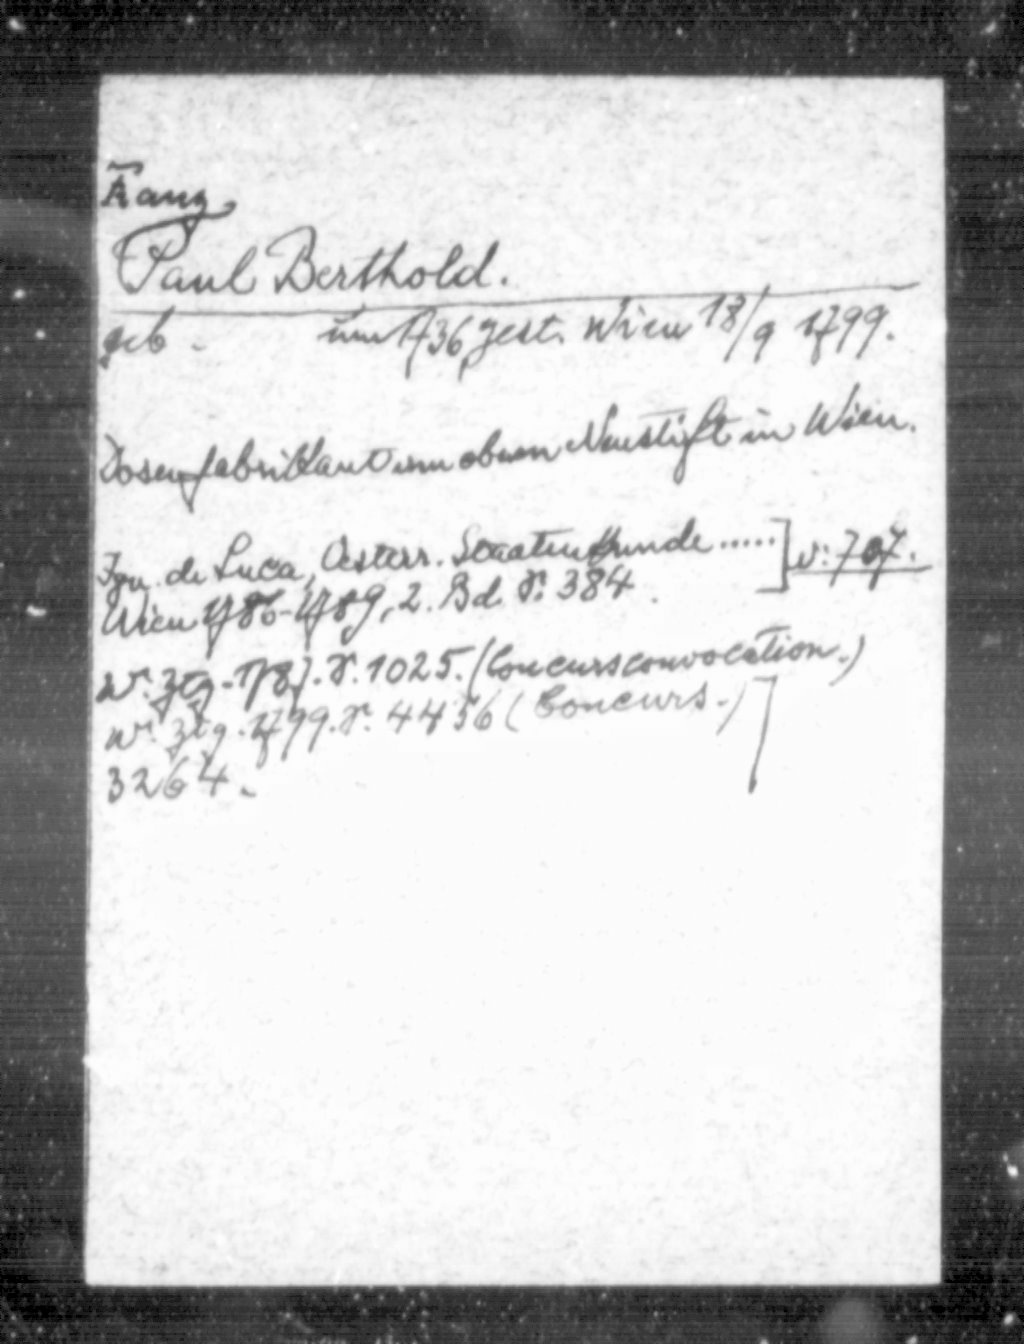 Kanz
Paul Berthold.
geb. um 1736, gest. Wien 18/9 1799.
Dosenfabrikant am obern Neustift in Wien.
Ign. de Luca, Österr. Staatenkunde ..... ] W: 707.
Wien 1786-1789, 2. Bd. S. 384.
W. Ztg. S. 1025. (Concursconvocation.)
W. Ztg. 1799. S. 4436 (Concurs.) ]
3264.